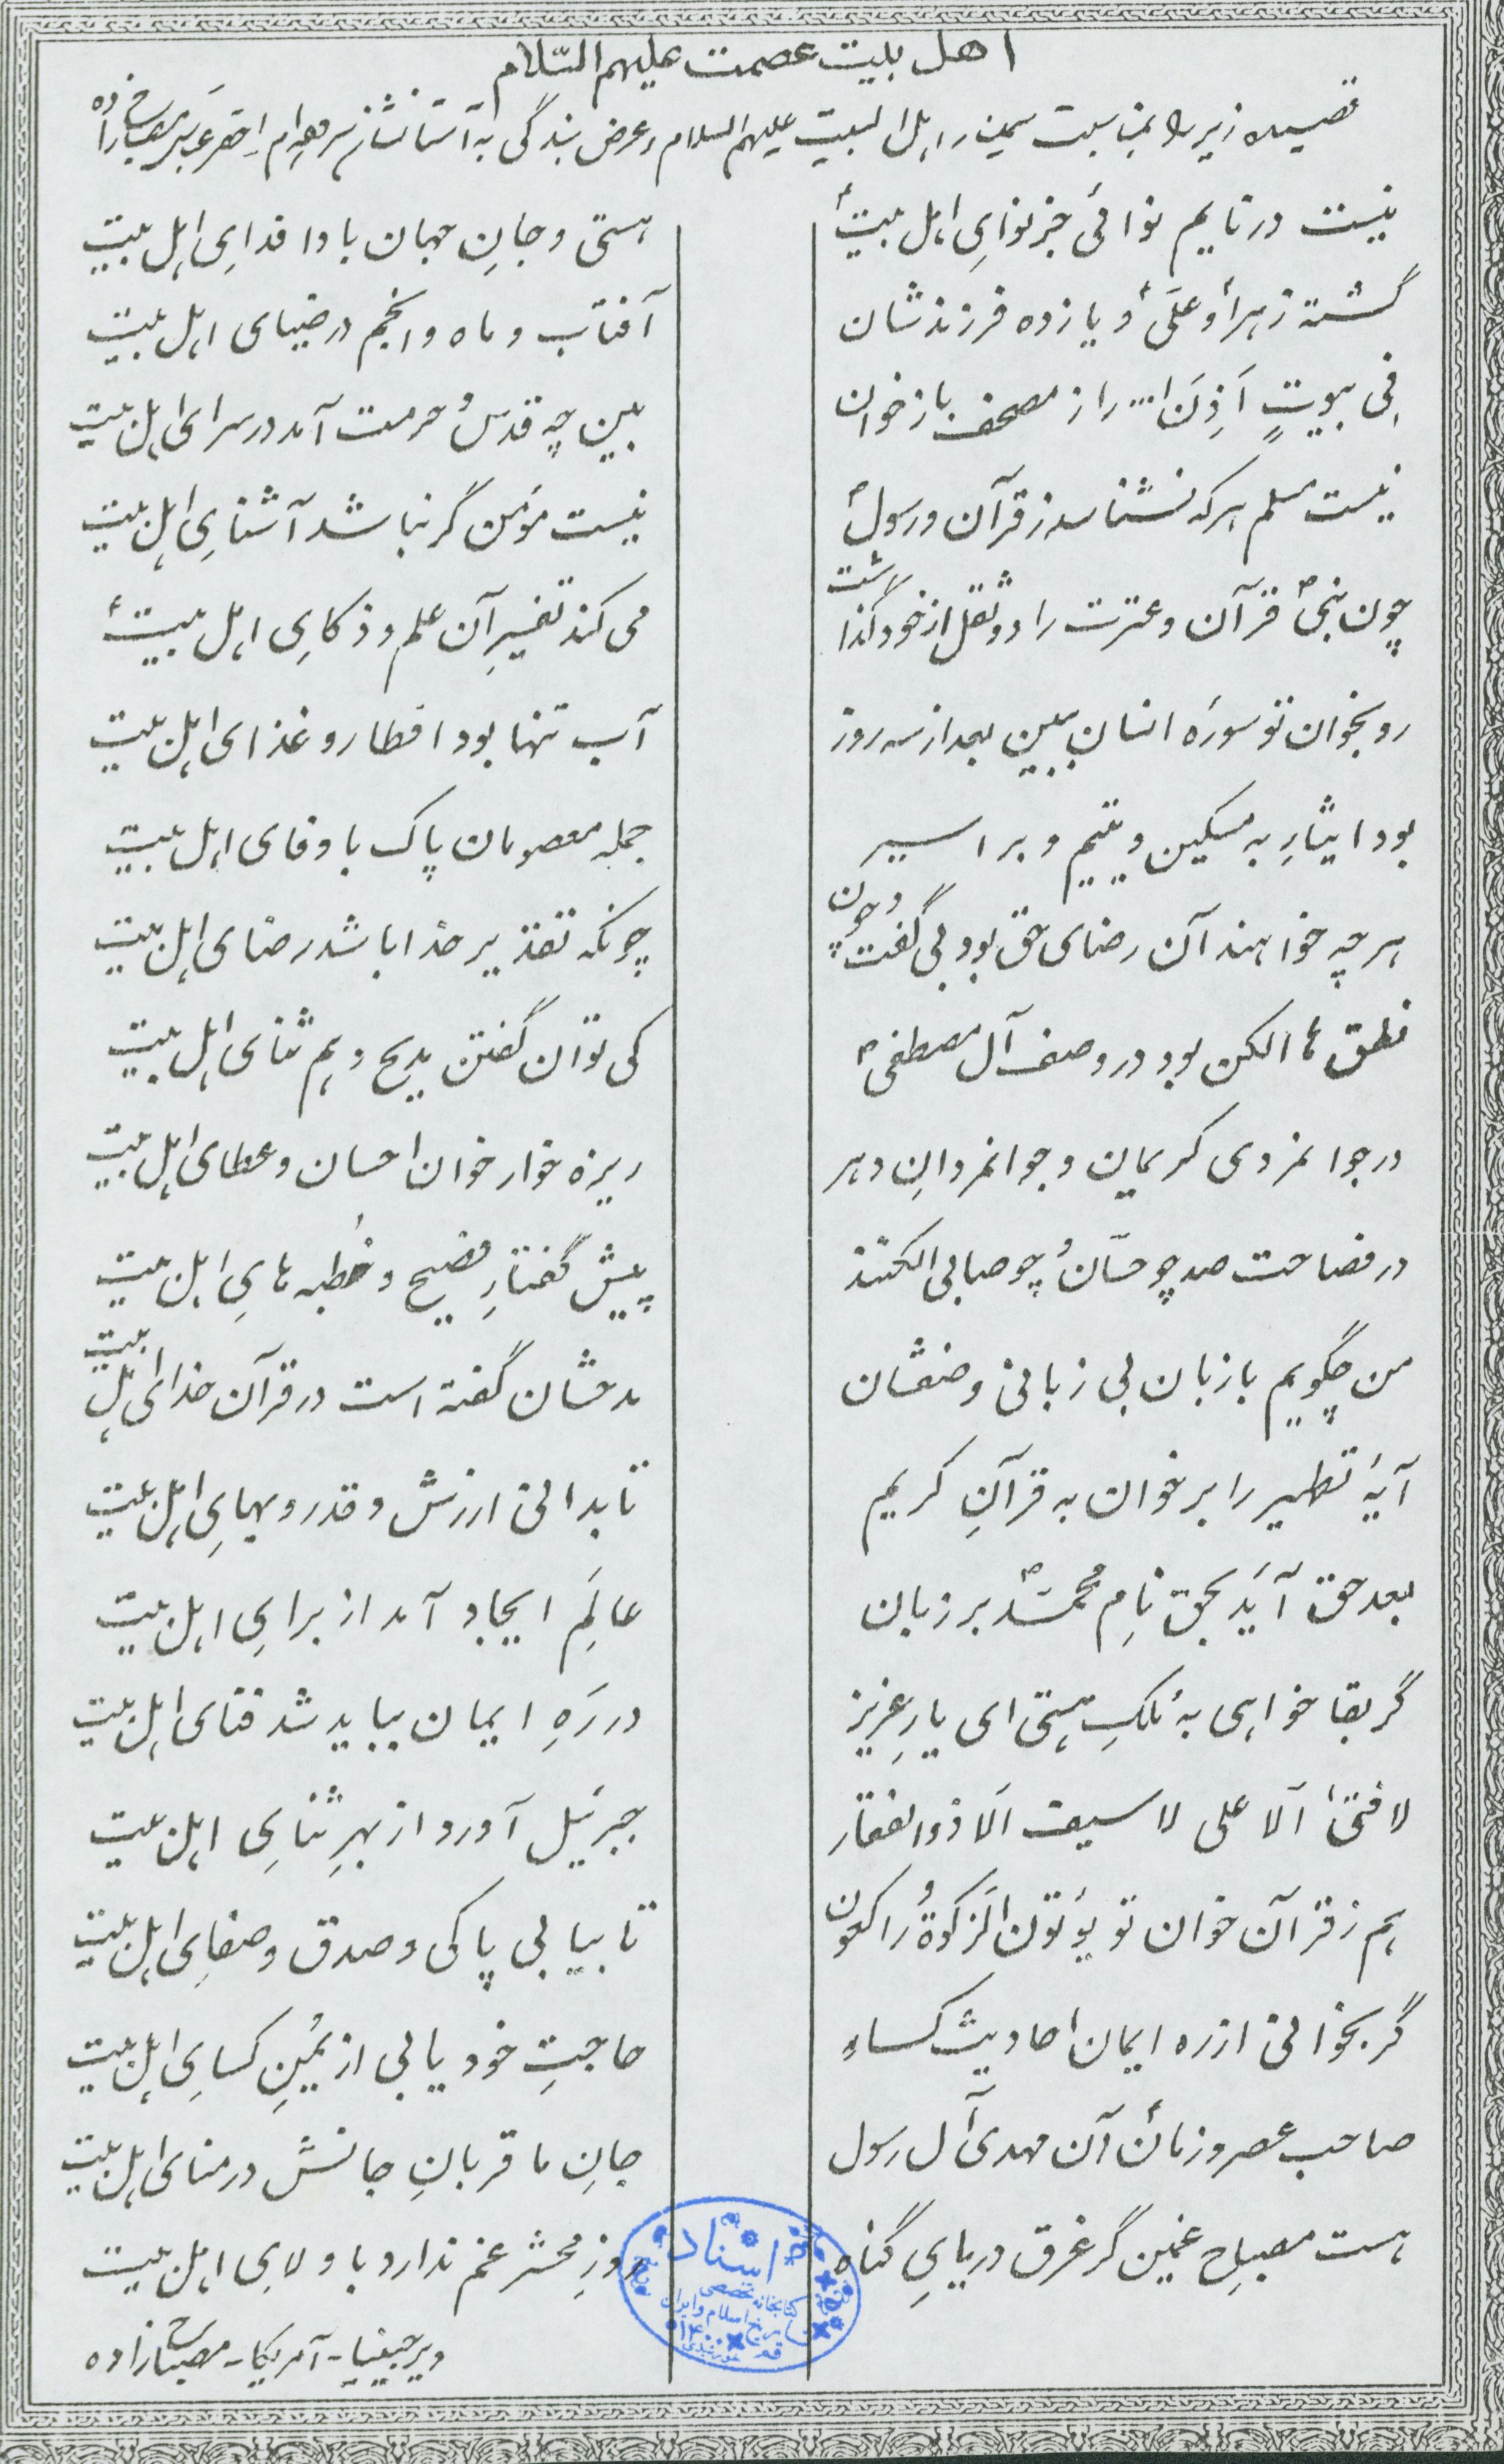 اهل بیت عصمت علیهم السّلام
قصیده زیر را بمناسبت سمینار اهل البیت علیهم السلام و عرض بندگی به آستانشان سروده‌ام احقر عباس مصباح زاده
نیست در نایم نوائی جز نوایِ اهل بیتؑ
هستی و جانِ جهان بادا فدایِ اهل بیت
گشته زهراؑ و علیؑ و یازده فرزندشان
آفتاب و ماه و انجم در ضیای اهل بیت
فِی بیوتٍ اَذِنَ ا... را ز مصحف باز خوان
بین چه قدسُ حرمت آمد در سرای اهل بیت
نیست مسلم هر که نشناسد ز قرآن و رسولؐ
نیست مؤمن گر نباشد آشنایِ اهل بیت
چون نبیؐ قرآن و عترت را دو ثقل از خود گذاشت
می کند تفسیرِ آن علم و ذکایِ اهل بیتؑ
رو بخوان تو سورهٔ انسان ببین بعد از سه روز
آب تنها بود افطار و غذای اهل بیت
بود ایثارِ به مسکین و یتیم و بر اسیر
جمله معصومان پاک باوفای اهل بیت
هر چه خواهند آن رضای حق بود بی گفت و چون
چونکه تقدیر خدا باشد رضای اهل بیت
نطق ما الکن بود در وصف آل مصطفیؐ
کی توان گفتن مدیح و هم ثنای اهل بیت
در جوانمردی کریمان و جوانمردانِ دهر
ریزه خوار خوان احسان و عطای اهل بیت
در فصاحت صد چو حسّانُ چو صابی الکنند
پیش گفتارِ فصیح و خُطبه هایِ اهل بیت
من چگویم با زبان بی زبانی وصفشان
مدحشان گفته است در قرآن خدای اهل بیت
آیهٔ تطهیر را برخوان به قرآنِ کریم
تا بدانی ارزش و قدر و بهایِ اهل بیت
بعد حق آیَد بحق نامِ محمّدؐ بر زبان
عالَمِ ایجاد آمد از برایِ اهل بیت
گر بقا خواهی به مُلکِ هستی ای یارِ عزیز
در رَهِ ایمان بباید شد فنای اهل بیت
لا فتیٰ اَلا علی لا سیف اَلا ذوالفقار
جبرئیل آورد از بهرِ ثنایِ اهل بیت
هم ز قرآن خوان تو یؤتون اَلزکوةُ راکعون
تا بیابی پاکی و صدق و صفایِ اهل بیت
گر بخوانی از ره ایمان احادیث کساء
حاجتِ خود یابی از یُمنِ کسایِ اهل بیت
صاحب عصر و زمانؑ آن مهدی آل رسول
جانِ ما قربانِ جانش در منای اهل بیت
هست مصباحِ غمین گر غرق دریایِ گناه
روزِ محشر غم ندارد با ولایِ اهل بیت
ویرجینیا - آمریکا - مصباح زاده
اسناد
کتابخانه تخصصی
تاریخ اسلام و ایران
قم